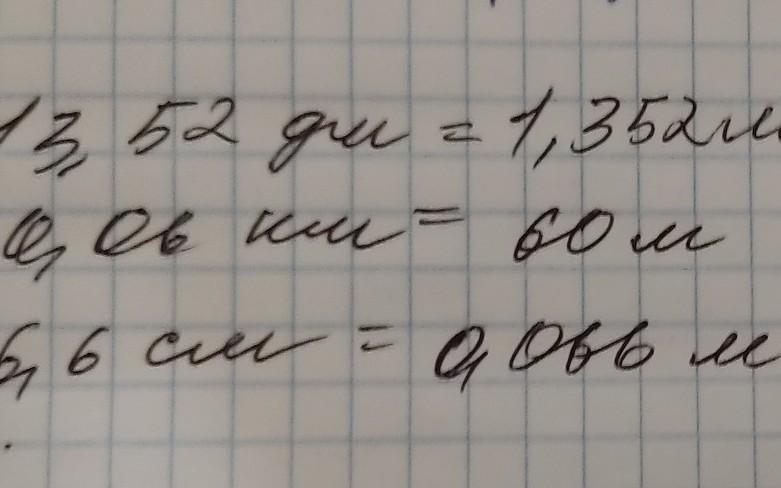 13,52 дм = 1,352 м
0,06 км = 60 м
6,6 см = 0,066 м